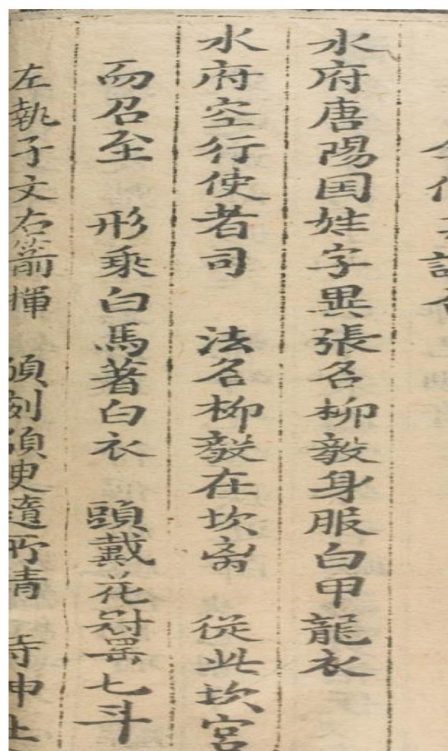 水府唐陽国姓字異張名柳毅身服白甲龍衣
水府空行使者司　法名柳毅在坎宫　從此坎宮
而召至　形乘白馬著白衣　頭戴花冠罡七斗
左執子文右箭揮　須刻須史隨所請　寺申上